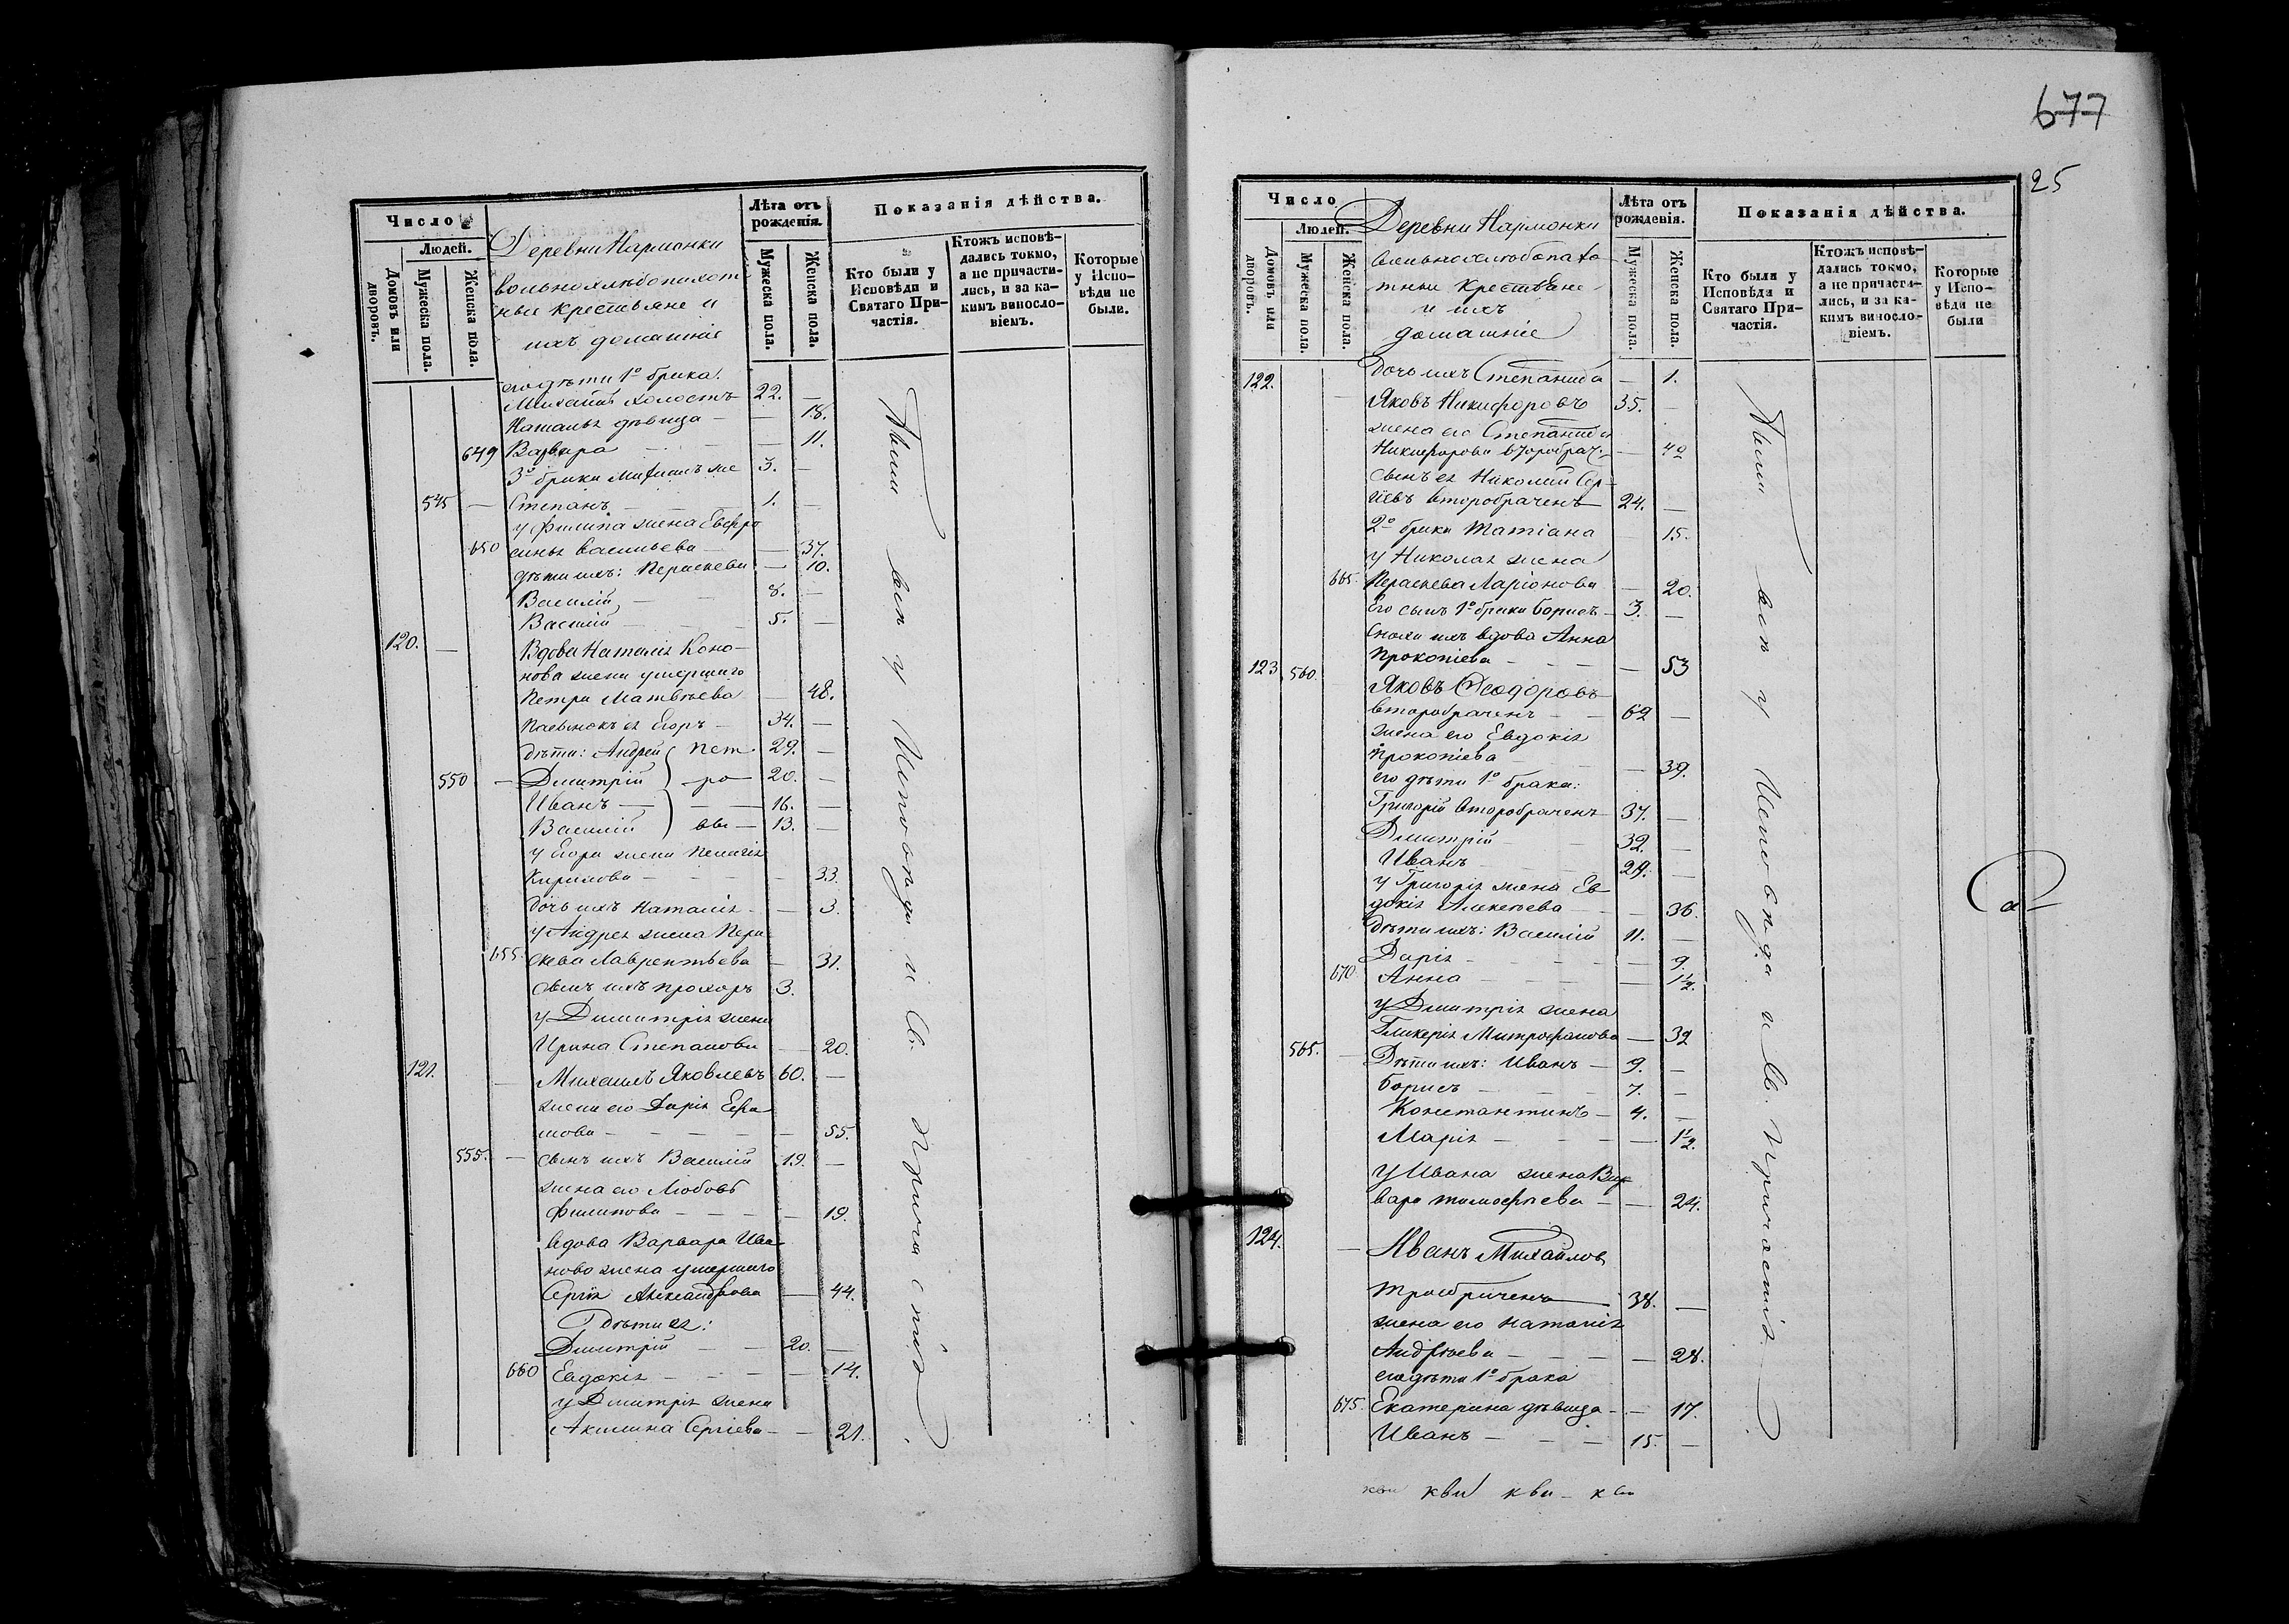 Число
Людей.
Домовъ или дворовъ.
Мужеска пола.
Женска пола.
Деревни Нармонки
вольнохлѣбопахот
ные крестьяне и
ихъ домашніе
Лѣта отъ рожденія.
Мужеска пола.
Женска пола.
Показанія дѣйства.
Кто были у Исповѣди и Святаго Причастія.
Ктожъ исповѣ-
дались токмо,
а не причасти-
лись, и за ка-
кимъ виносло-
віемъ.
Которые
у Испо-
вѣди не
были.
его дѣти 1º брака.
Михаилъ холостъ 22. —
Наталья дѣвица — 18.
649 Варвара — 11.
3º брака Михаилъ же 3. —
545 — Степанъ — 1. —
у Филипа жена Евфро
650 синья Васильева — 37.
дѣти ихъ: Параскева — 10.
Василій — 8. —
Василій — 5. —
120. — Вдова Наталія Коно-
нова жена умершаго
Петра Матвѣева 48.
Пасынокъ ея Егоръ — 34. —
дѣти: Андрей Пет 29. —
550 — Дмитрій ро 20. —
Иванъ — 16. —
Василій вы — 13. —
у Егора жена Пелагія
Кирилова — 33.
дочь ихъ Наталія — 3.
у Андрея жена Пара
655. скева Лаврентьева — 31.
сынъ ихъ Прохоръ 3.
у Димитрія жена
Ирина Степанова — 20.
121. — Михаилъ Яковлевъ 60. —
жена его Дарія Ефи
мова — 55.
555. — сынъ ихъ Василій 19. —
жена его Любовь
Филипова — 19.
вдова Варвара Ива
нова жена умершаго
Сергія Александрова — 44.
дѣти ея:
Дмитрій — 20. —
660 Евдокія — 14.
у Дмитрія жена
Акилина Сергіева — 21.
Тіи всѣ у Исповѣди и Св. Причастія
677
25
Число
Людей.
Домовъ или дворовъ.
Мужеска пола.
Женска пола.
Деревни Нармонки
вольнохлѣбопахо-
тные крестьяне
и ихъ
домашніе
Лѣта отъ рожденія.
Мужеска пола.
Женска пола.
Показанія дѣйства.
Кто были у Исповѣди и Святаго Причастія.
Ктожъ исповѣ-
дались токмо,
а не причасти-
лись, и за ка-
кимъ виносло-
віемъ.
Которые
у Испо-
вѣди не
были
дочь ихъ Степанида — 1.
122. — Яковъ Никифоровъ 35. —
жена его Степанида
Никифорова второбрач. — 40
сынъ ея Николай Сер-
гіевъ второбраченъ 24. —
2º брака Татіана 15.
у Николая жена
665. Параскева Ларіонова — 20.
Его сынъ 1º брака Борисъ — 3. —
сноха ихъ вдова Анна
Прокопіева — 53
123 560. Яковъ Ѳеодоровъ
второбраченъ — 62 —
жена его Евдокія
Прокопіева — 39.
его дѣти 1º брака:
Григорій второбраченъ 37. —
Дмитрій — 32. —
Иванъ 29. —
у Григорія жена Ев
докія Алексѣева — 36.
дѣти ихъ: Василій 11. —
Дарія — 9.
670. Анна — 1½.
у Дмитрія жена
Гликерія Митрофанова — 32
565. — Дѣти ихъ: Иванъ — 9. —
Борисъ — 7. —
Константинъ — 4. —
Марія — 1½.
у Ивана жена Вар
вара Тимофѣева — 24.
124. — Иванъ Михайловъ
троебраченъ 38. —
жена его Наталія
Андрѣева — 28.
его дѣти 1º брака
675. Екатерина дѣвица — 17.
Иванъ — 15. —
Тіи всѣ у Исповѣди и Св. Причастія.